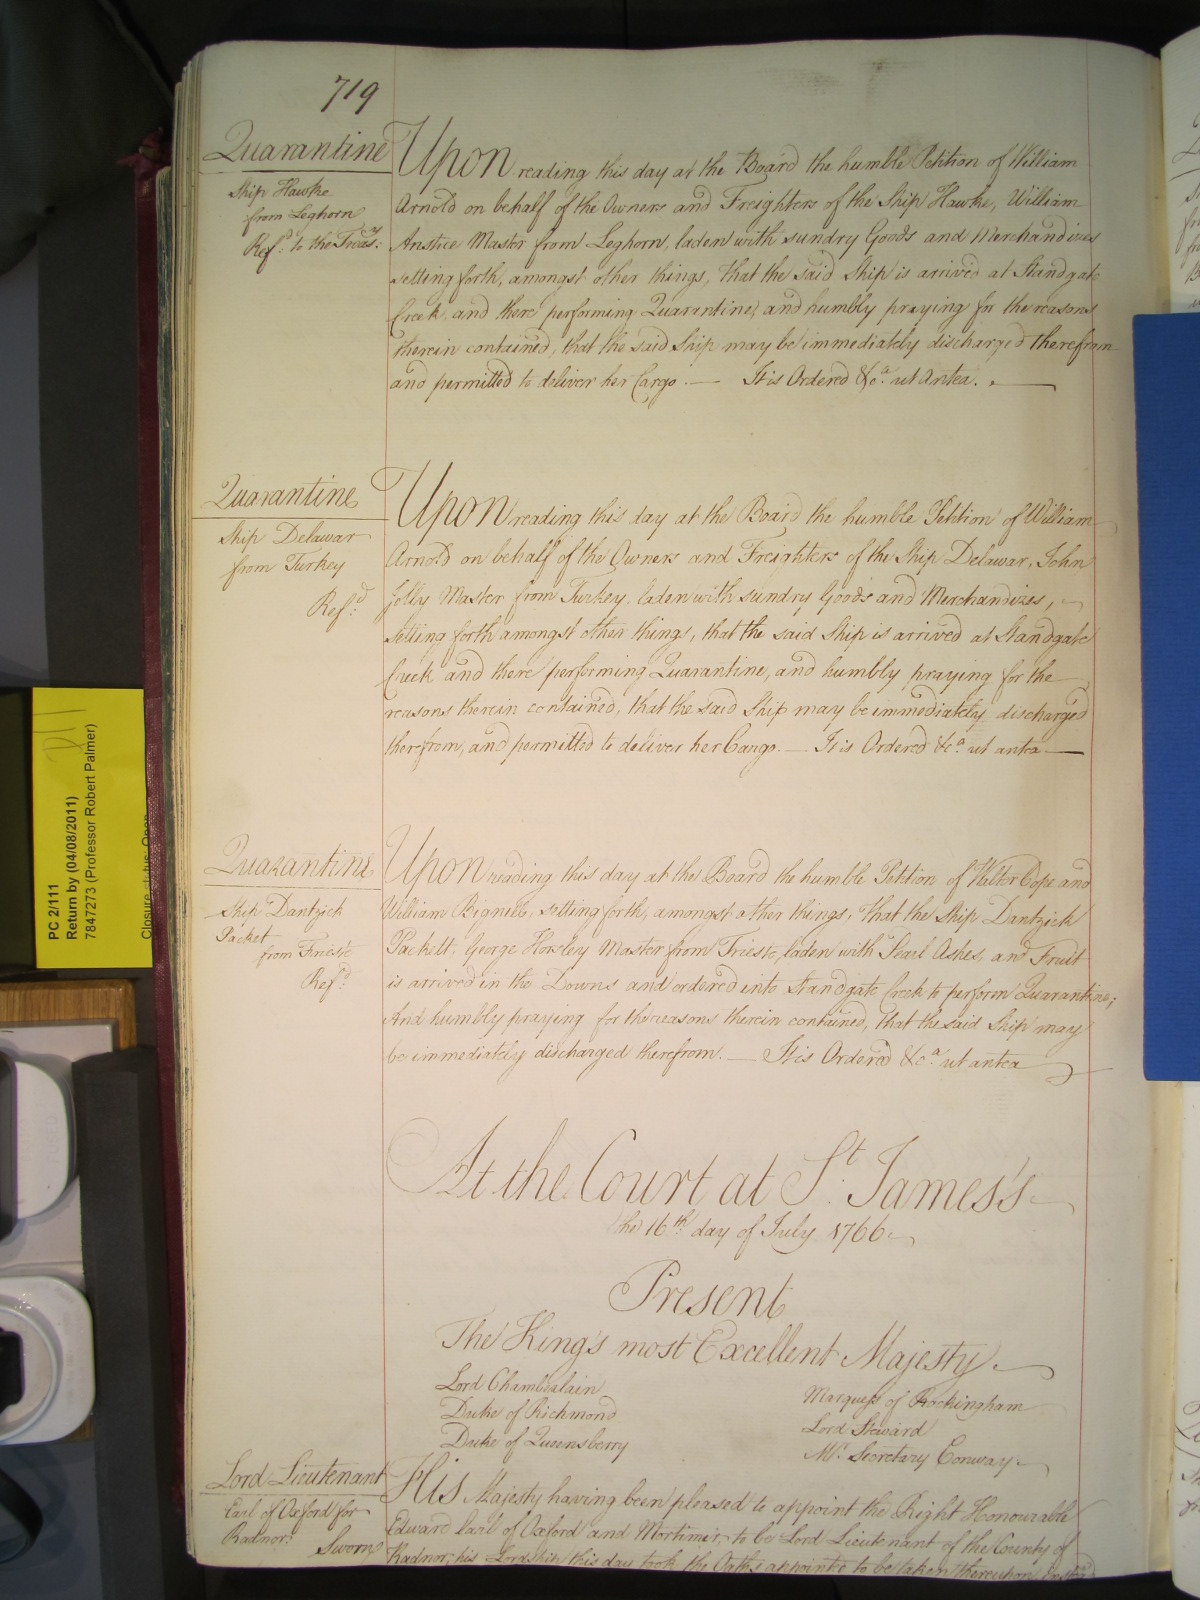 719
Quarantine
Ship Hawke
from Leghorn
Ref.d to the Treas.ry
Upon reading this day at the Board the humble Petition of William
Arnold on behalf of the Owners and Freighters of the Ship Hawke, William
Anstice Master from Leghorn, laden with sundry Goods and Merchandizes
setting forth, amongst other things, that the said Ship is arrived at Standgate
Creek and there performing Quarantine, and humbly praying for the reasons
therein contained, that the said Ship may be immediately discharged therefrom
and permitted to deliver her Cargo.— It is Ordered &c.a ut Antea.
Quarantine
Ship Delawar
from Turkey
Ref.d
Upon reading this day at the Board the humble Petition of William
Arnold on behalf of the Owners and Freighters of the Ship Delawar, John
Jolly Master from Turkey, laden with sundry Goods and Merchandizes,
setting forth amongst other things, that the said Ship is arrived at Standgate
Creek and there performing Quarantine, and humbly praying for the
reasons therein contained, that the said Ship may be immediately discharged
therefrom, and permitted to deliver her Cargo.— It is Ordered &c.a ut antea
Quarantine
Ship Dantzick
Packet
from Trieste
Ref.d
Upon reading this day at the Board the humble Petition of Walter Cope and
William Bignell, setting forth, amongst other things, that the Ship Dantzick
Packett, George Horsley Master from Trieste, laden with Pearl Ashes, and Fruit
is arrived in the Downs and ordered into Standgate Creek to perform Quarantine;
And humbly praying for the reasons therein contained, that the said Ship may
be immediately discharged therefrom.— It is Ordered &c.a ut antea
At the Court at S.t James's
the 16.th day of July 1766
Present
The King's most Excellent Majesty
Lord Chamberlain
Duke of Richmond
Duke of Queensberry
Marquess of Rockingham
Lord Steward
M.r Secretary Conway
Lord Lieutenant
Earl of Oxford for
Radnor.
Sworn
His Majesty having been pleased to appoint the Right Honourable
Edward Earl of Oxford and Mortimer, to be Lord Lieutenant of the County of
Radnor, his Lordship this day took the Oaths appointed to be taken thereupon
PC 2/111
Return by (04/08/2011)
7847273 (Professor Robert Palmer)
Closure status: Open